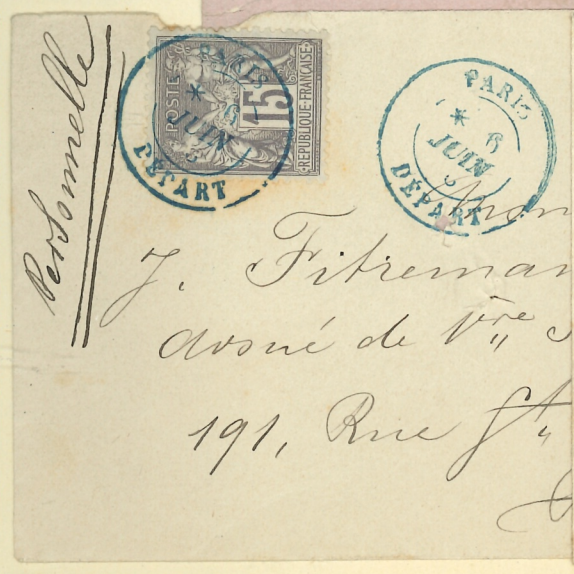 Personnelle
POSTES
15
REPUBLIQUE FRANÇAISE
PARIS
* 6
JUIN
DEPART
PARIS
* 6
JUIN
DEPART
Mon
J. Fitreman
191, Rue St